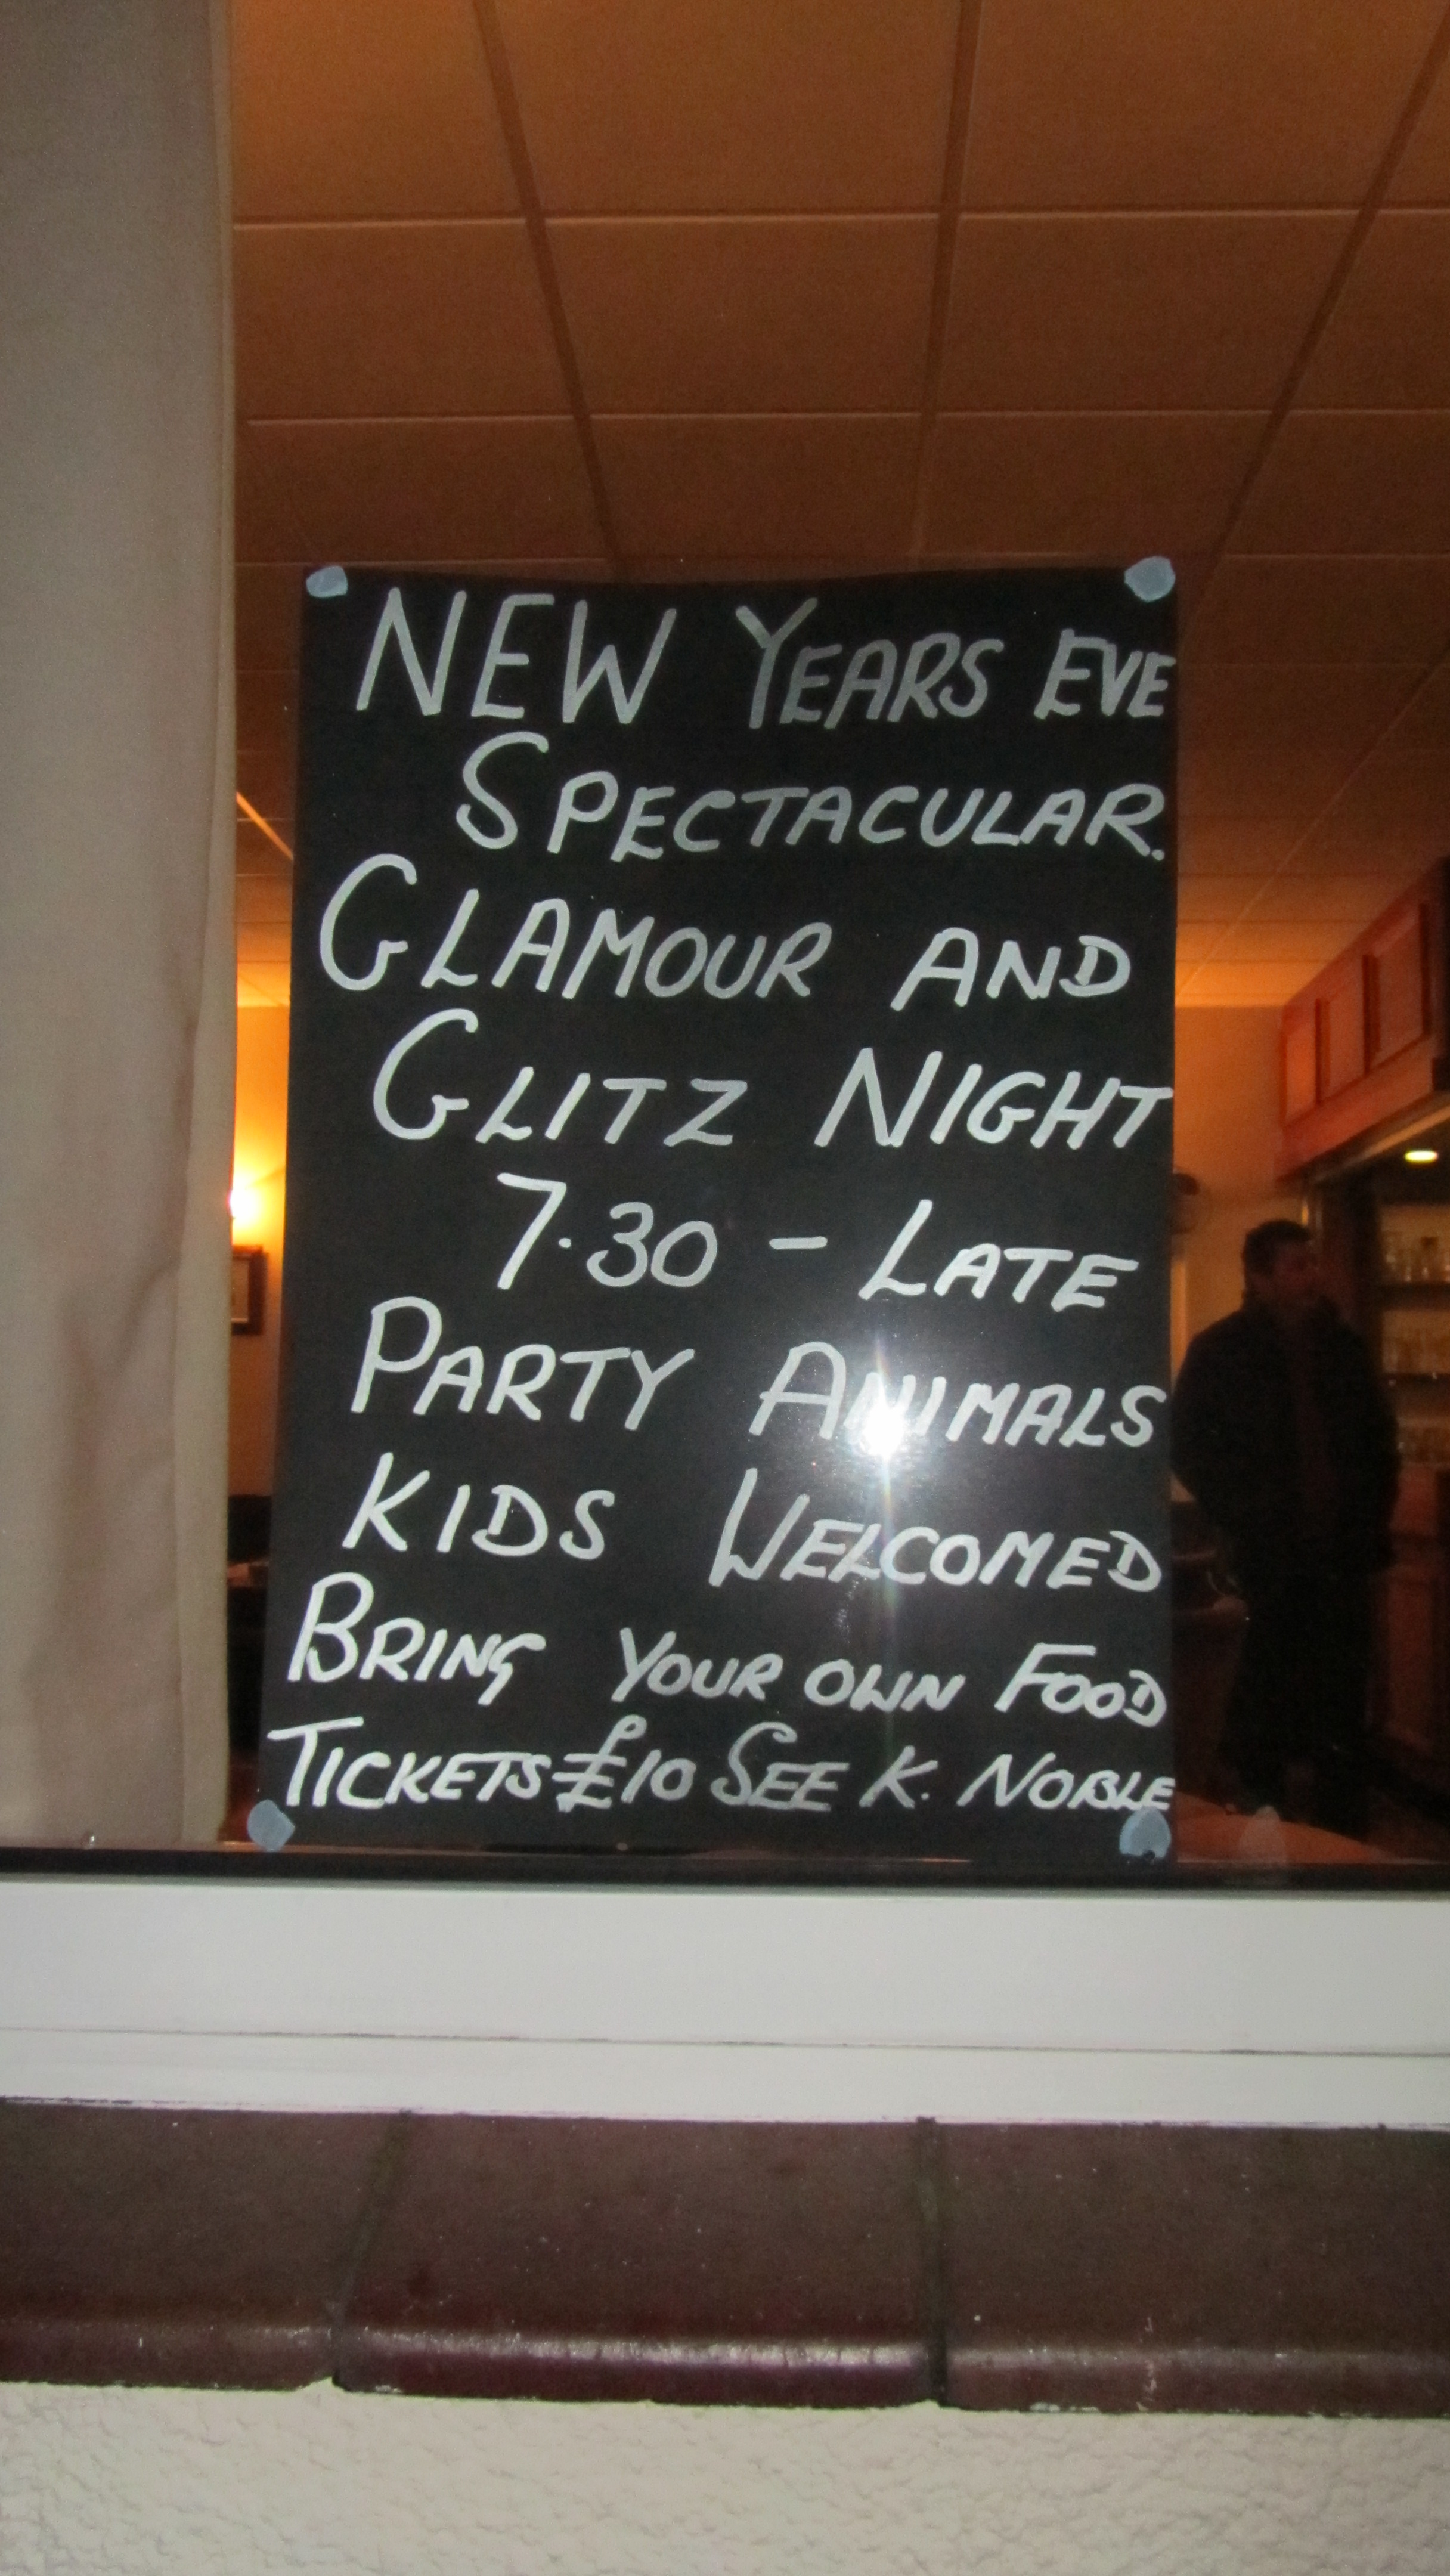 NEW YEARS EVE
SPECTACULAR.
GLAMOUR AND
GLITZ NIGHT
7.30 - LATE
PARTY ANIMALS
KIDS WELCOMED
BRING YOUR OWN FOOD
TICKETS £10 SEE K. NOBLE